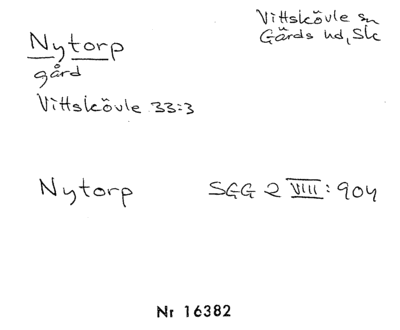 Vittskövle sn
Gärds hd, Sk
Nytorp
gård
Vittskövle 33:3
Nytorp SGG 2 VIII: 904
Nr 16382